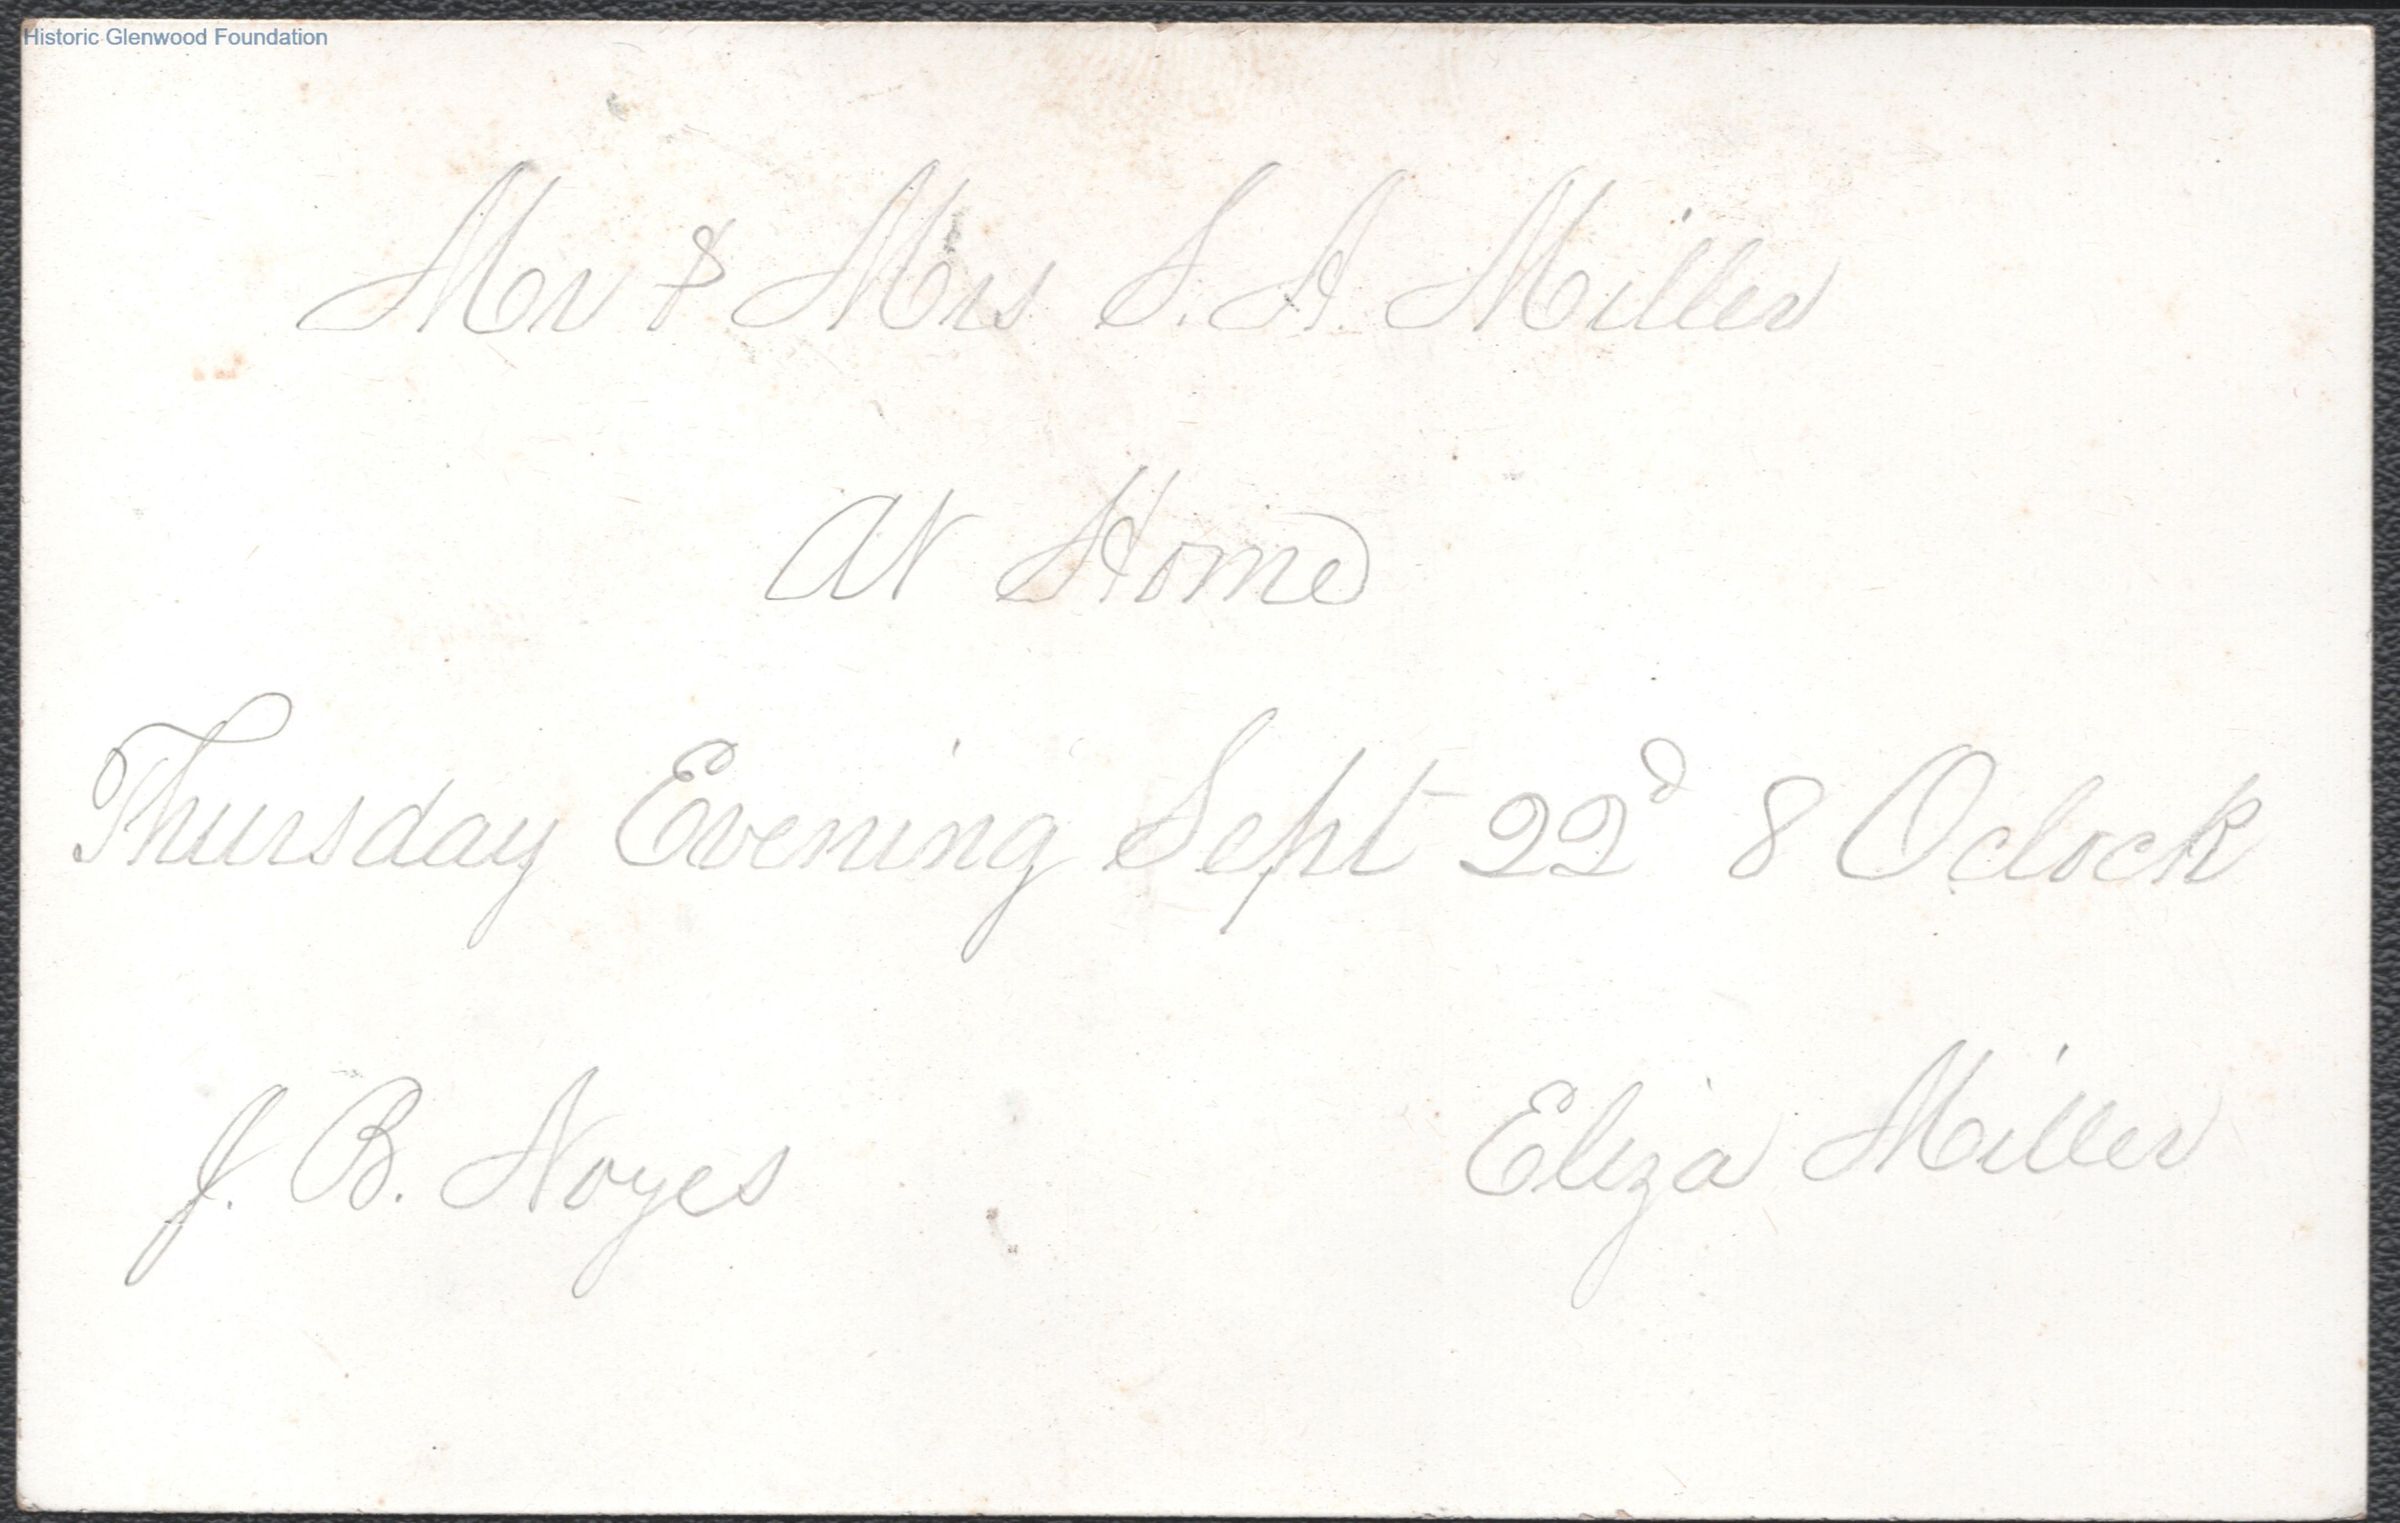 Historic Glenwood Foundation
Mr & Mrs S. A. Miller
At Home
Thursday Evening Sept 22d 8 Oclock
J. B. Noyes Eliza Miller